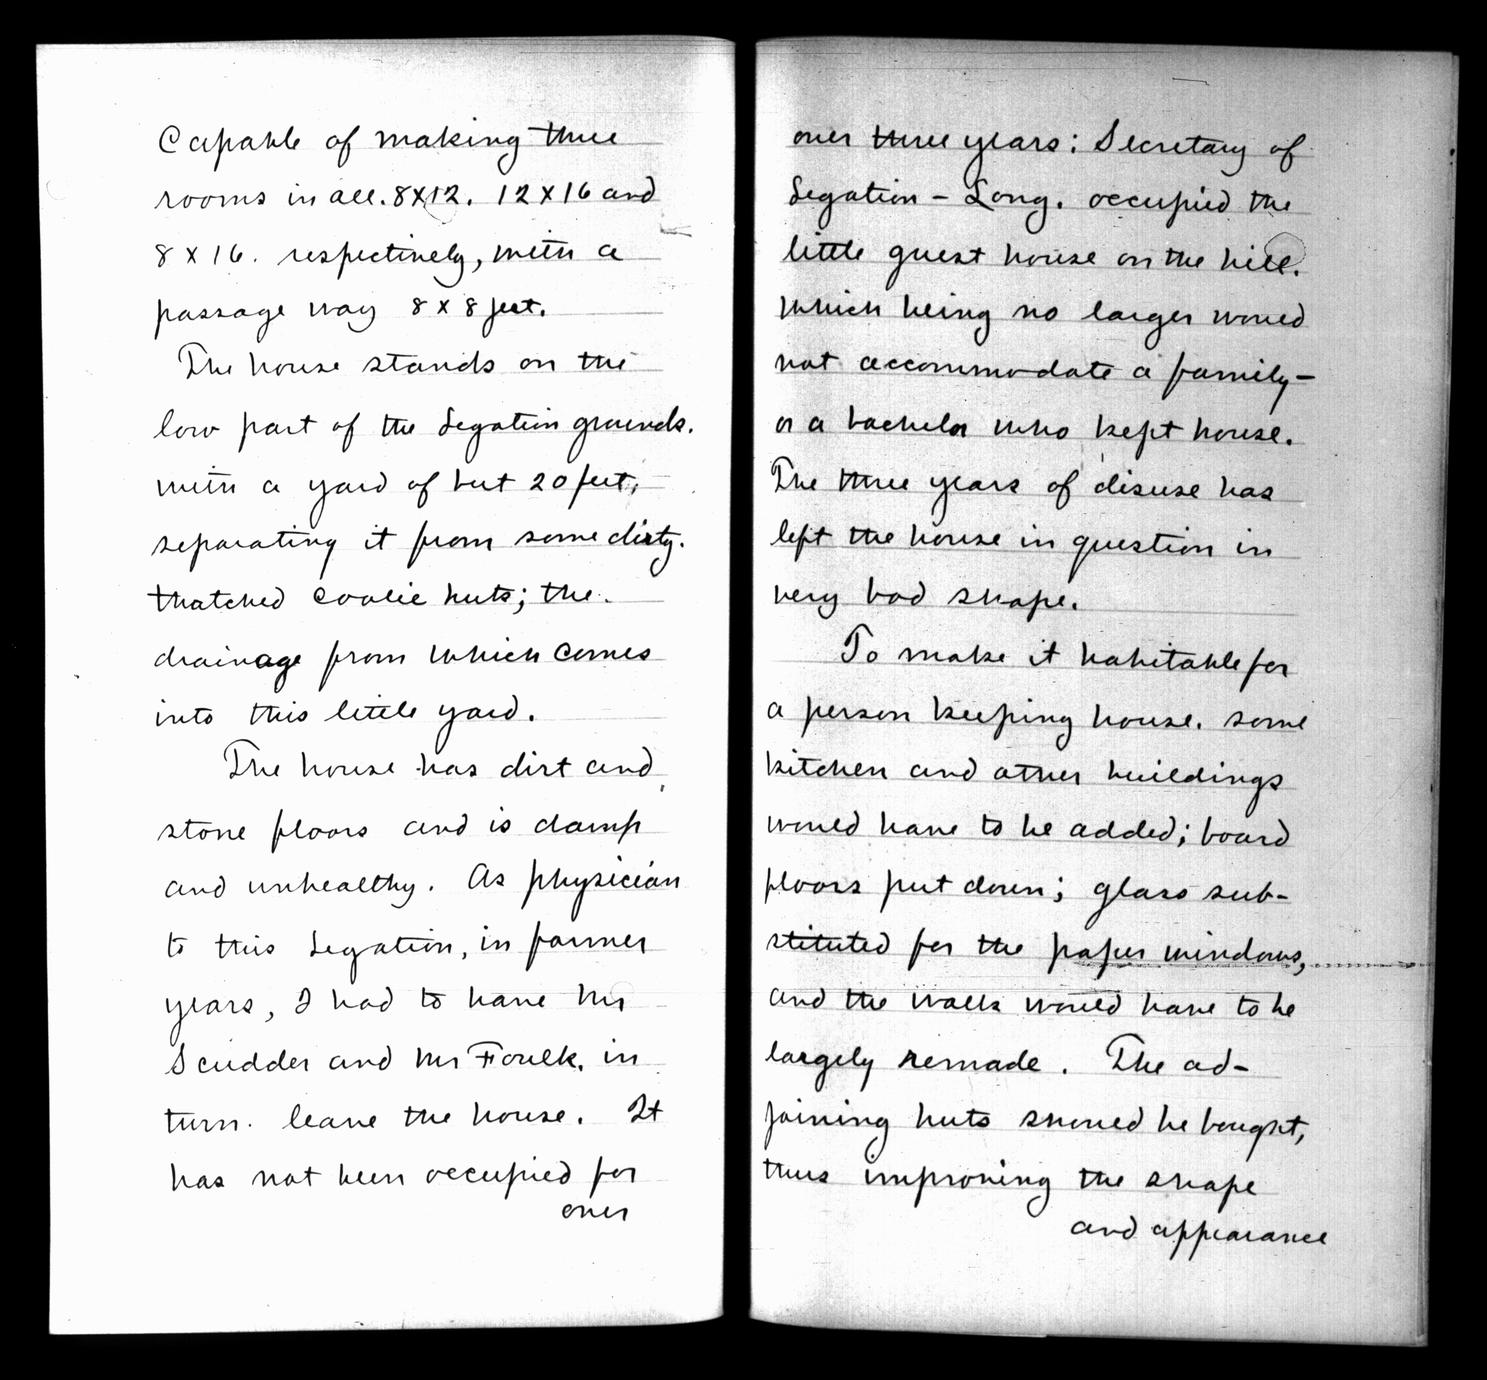 Capable of making three
rooms in all. 8X12. 12X16 and
8 X 16. respectively, with a
passage way 8 X 8 feet.
The house stands on the
low part of the Legation grounds.
with a yard of but 20 feet,
separating it from some dirty.
thatched coolie huts; the.
drainage from which comes
into this little yard.
The house has dirt and
stone floors and is damp
and unhealthy. As physician
to this Legation, in former
years, I had to have Mr
Scudder and Mr Foulk, in
turn. leave the house. It
has not been occupied for
over
over three years: Secretary of
Legation - Long. occupied the
little guest house on the hill.
which being no larger would
not accommodate a family -
or a bachelor who kept house.
The three years of disuse has
left the house in question in
very bad shape.
To make it habitable for
a person keeping house. some
kitchen and other buildings
would have to be added; board
floors put down; glass sub-
stituted for the paper windows,
and the walls would have to be
largely remade. The ad-
joining huts should be bought,
thus improving the shape
and appearance